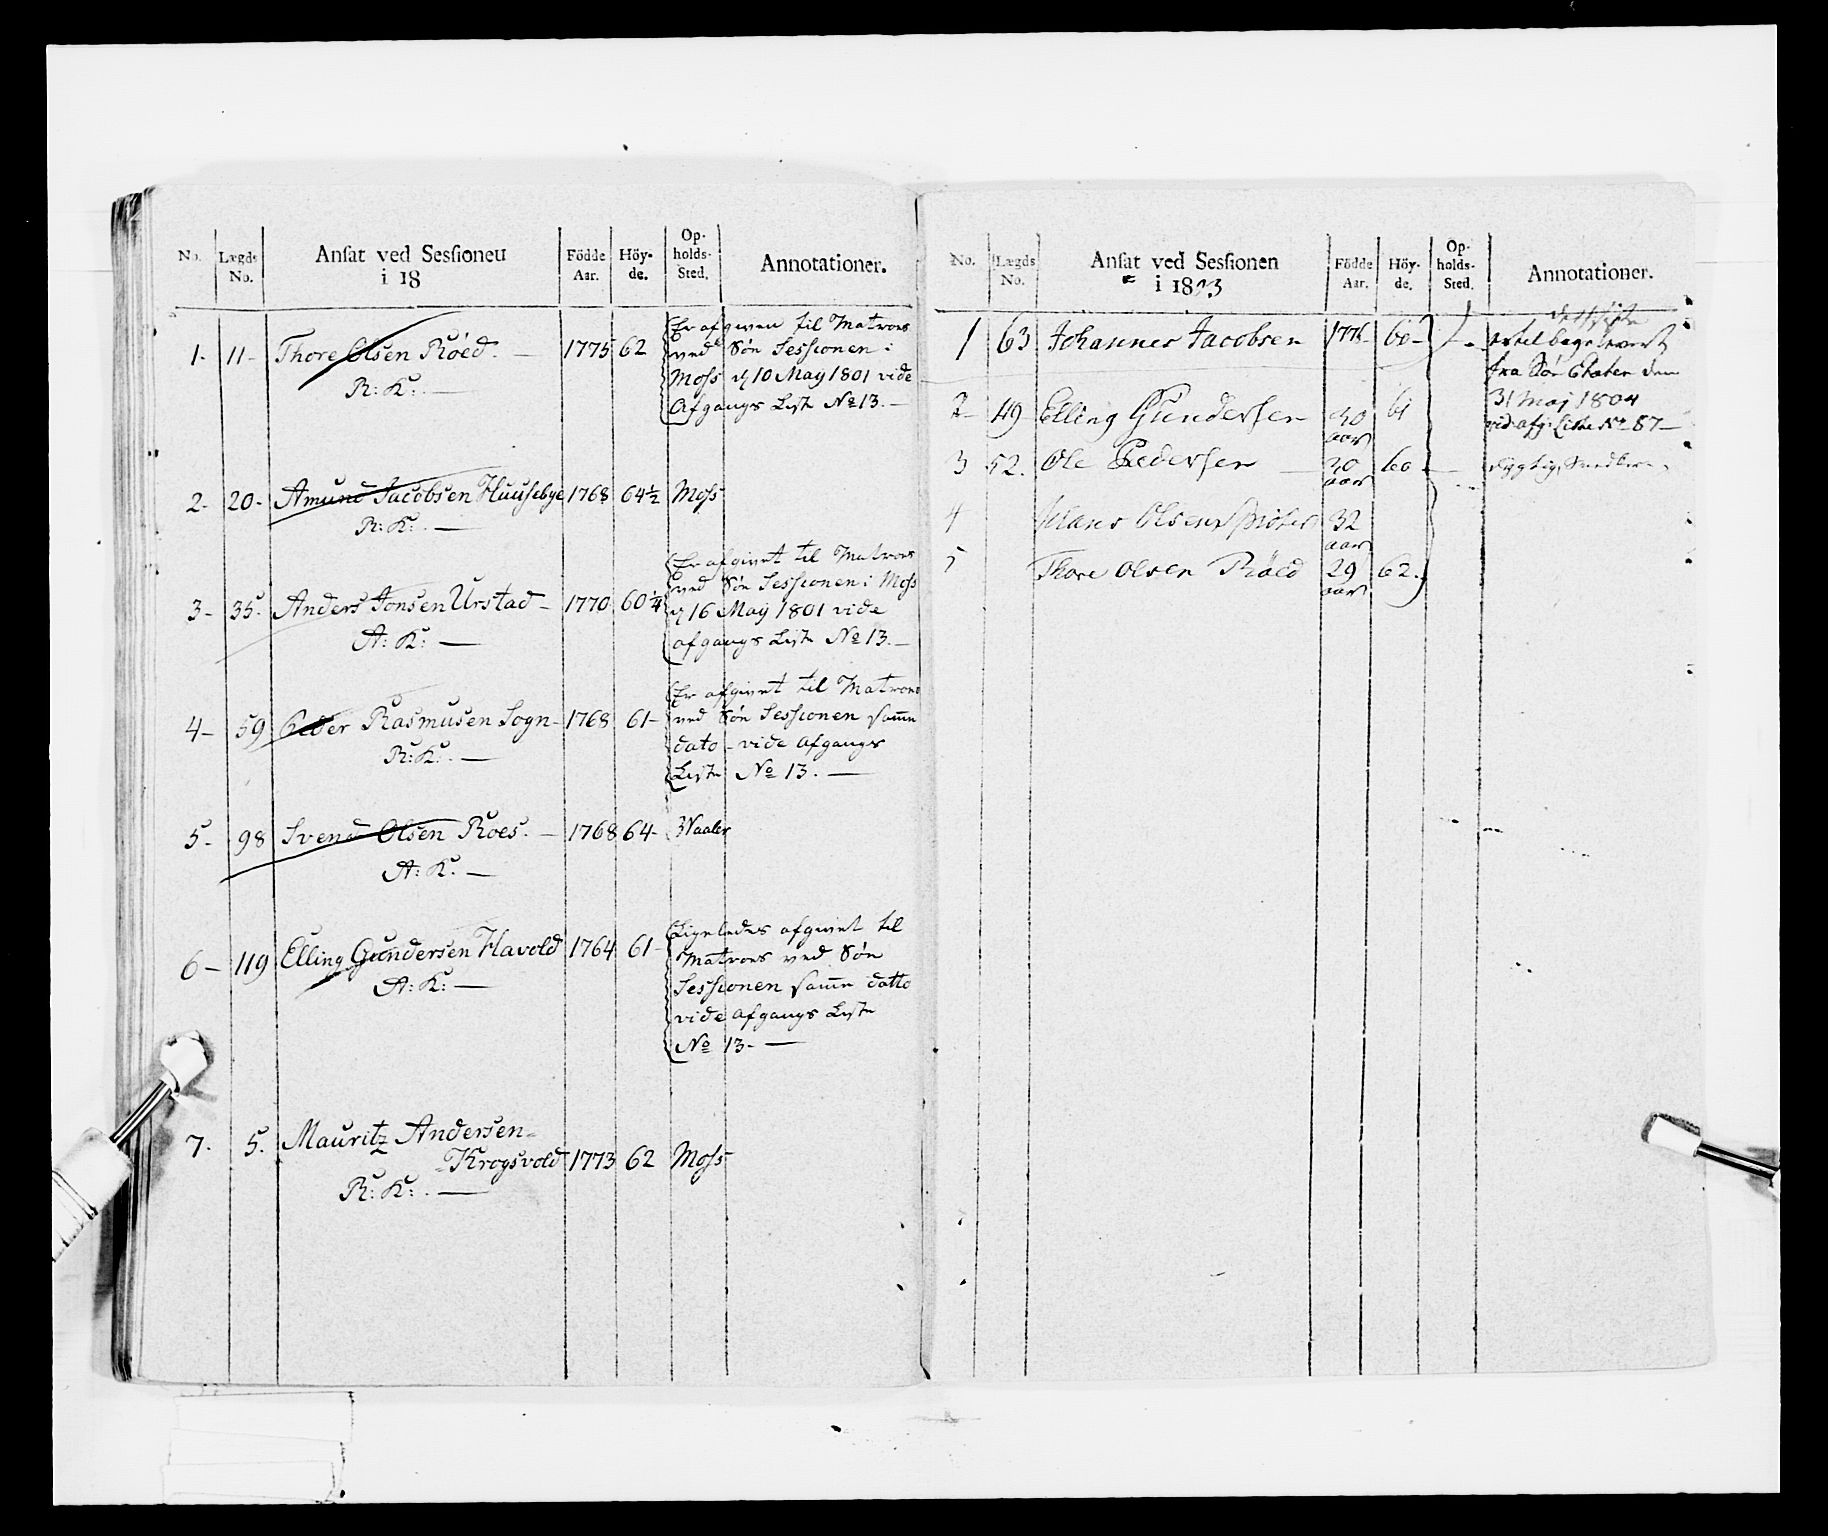 No. Lægds No. Ansat ved Sessionen i 18 Födde Aar. Höy-de. Op-holds-Sted. Annotationer.
1. 11 - Thore Olsen Röed. — 1775 62
R: K: —
Er afgiven til Matros
ved Söe Sessionen i
Moss d 10 May 1801 vide
Afgangs Liste No 13. —
2. 20 - Amund Jacobsen Huusebye 1768 64½ Moss
R: K: —
3 - 35. Anders Jonsen Urstad - 1770 60¼
A: K: —
Er afgivet til Matros
ved Söe Sessionen i Moss
d 16 May 1801 vide
afgangs Liste No 13. —
4 - 59 Peder Rasmusen Sogn - 1768 61 -
R: K: —
Er afgivet til Matros
ved Söe Sessionen samme
dato - vide Afgangs
Liste No 13. —
5 - 98 Svend Olsen Roes. — 1768 64 - Waaler
A: K. —
6 - 119 Elling Gundersen Havold 1764 61 -
A: K: —
Ligeledes afgivet til
Matroes ved Söe
Sessionen samme datto
vide afgangs Liste
No 13 - —
7. 5. Mauritz Andersen
Krogsvold 1773 62 Moss
R: K: —
No. Lægds No. Ansat ved Sessionen i 1803 Födde Aar. Höy-de. Op-holds-Sted. Annotationer.
1 63 Johannes Jacobsen 60 -
fra Söe Etaten den
31 Maj 1804
vid. afg: Liste No 87 -
2 - 49 Elling Gundersen 30 aar 61
3 52. Ole Pedersen — 30 aar 60 -
4 Hans Olsen 32 aar
5 Thore Olsen Röed 29 aar 62.